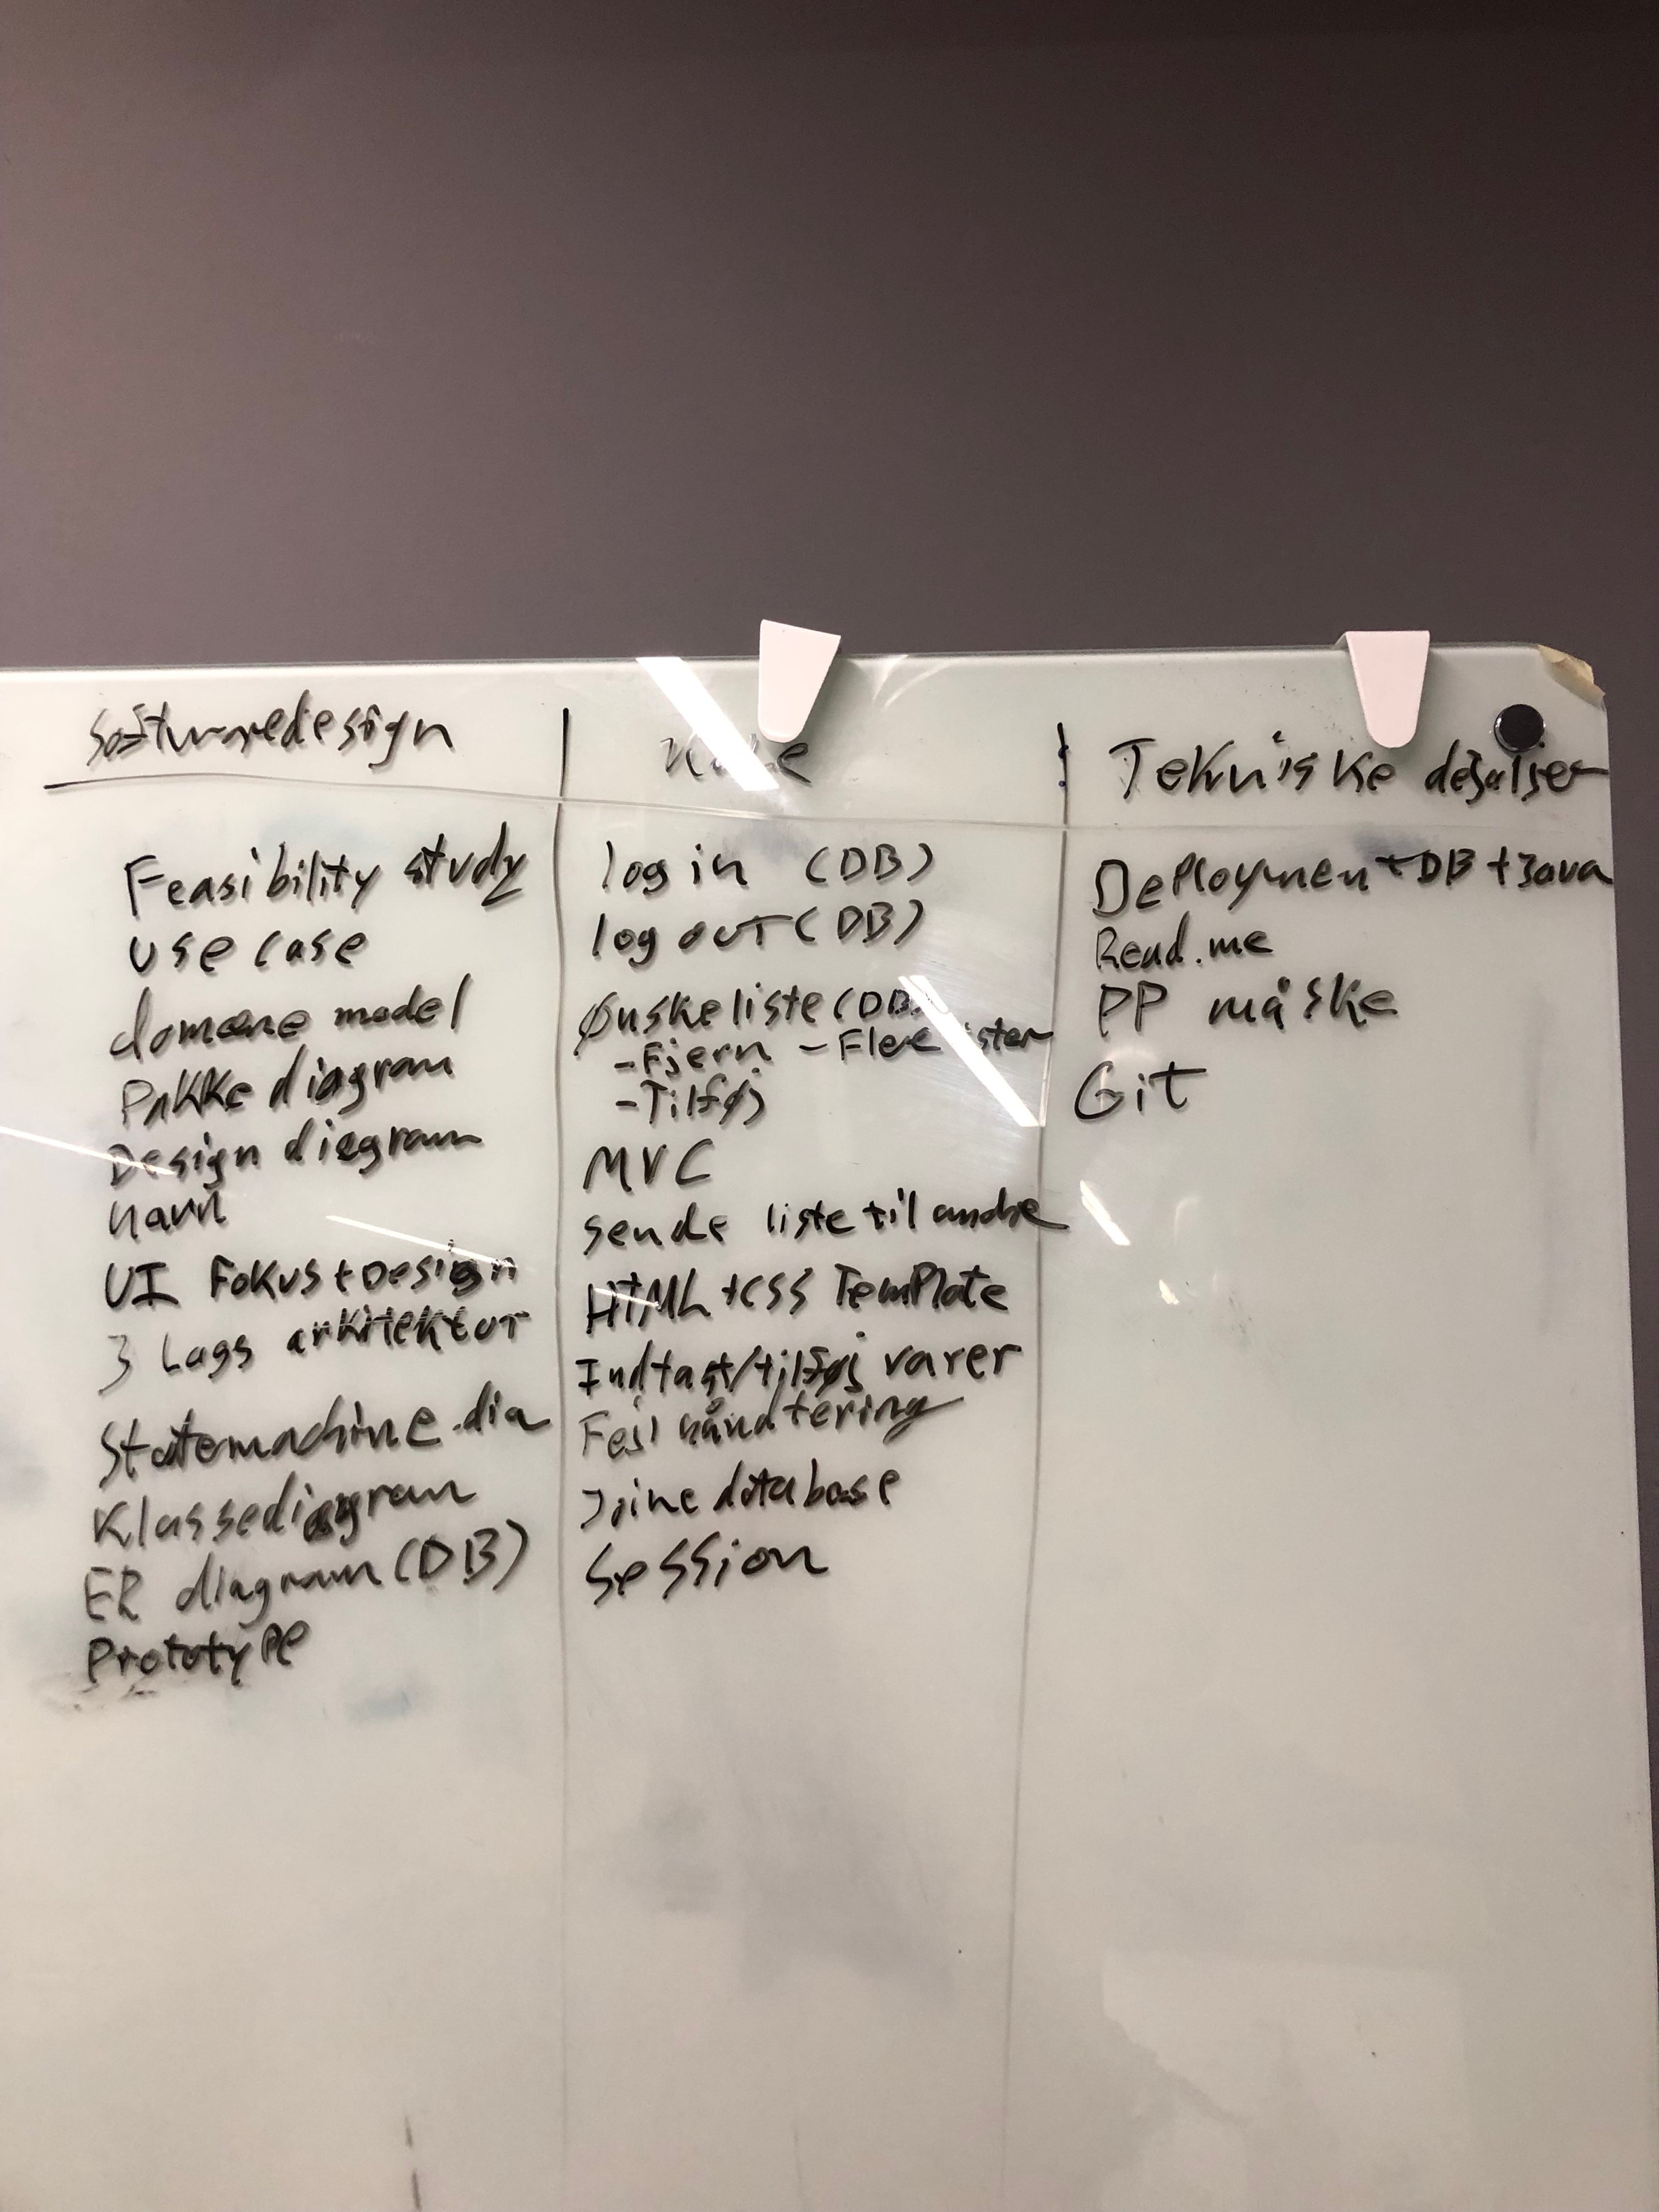 Softwaredesign
Feasibility study
use case
domæne model
Pakke diagram
Design diagram
navn
UI Fokus + Design
3 Lags arkitektur
Statemachine dia
Klassediagram
ER diagram (DB)
Prototype
Kode
log in (DB)
log out (DB)
Ønskeliste (DB)
- Fjern - Flere lister
- Tilføj
MVC
sende liste til andre
HTML + CSS Template
Indtast/tilføj varer
Fejl håndtering
Joine database
Session
Tekniske detaljer
Deployment DB + Java
Read.me
PP måske
Git